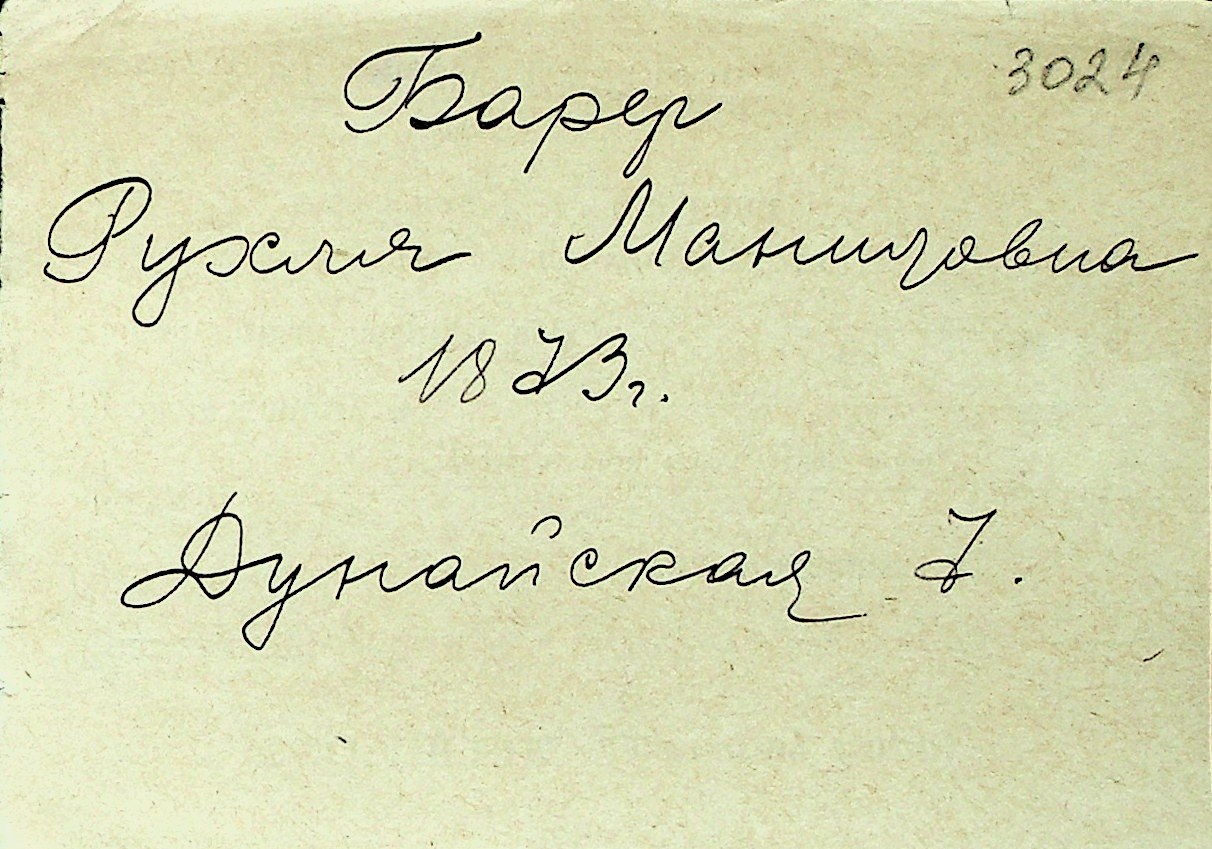 3024
Барер
Рухля Манишовна
1873г.
Дунайская 7.